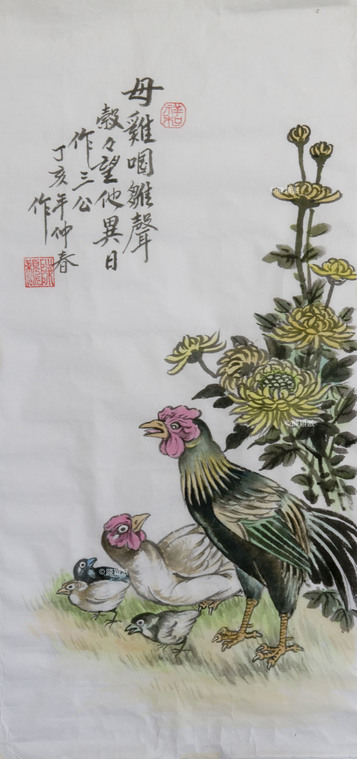 母雞啯雛聲
愨々望他異日
作三公
丁亥年仲春
作